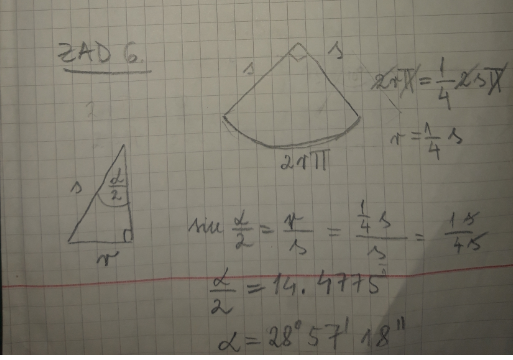 ZAD 6.
s s
2rπ
2rπ = 1/4 2sπ
r = 1/4 s
s α/2
r
sin α/2 = r/s = (1/4 s)/(s/1) = 1s/4s
α/2 = 14.4775
α = 28° 57' 18"